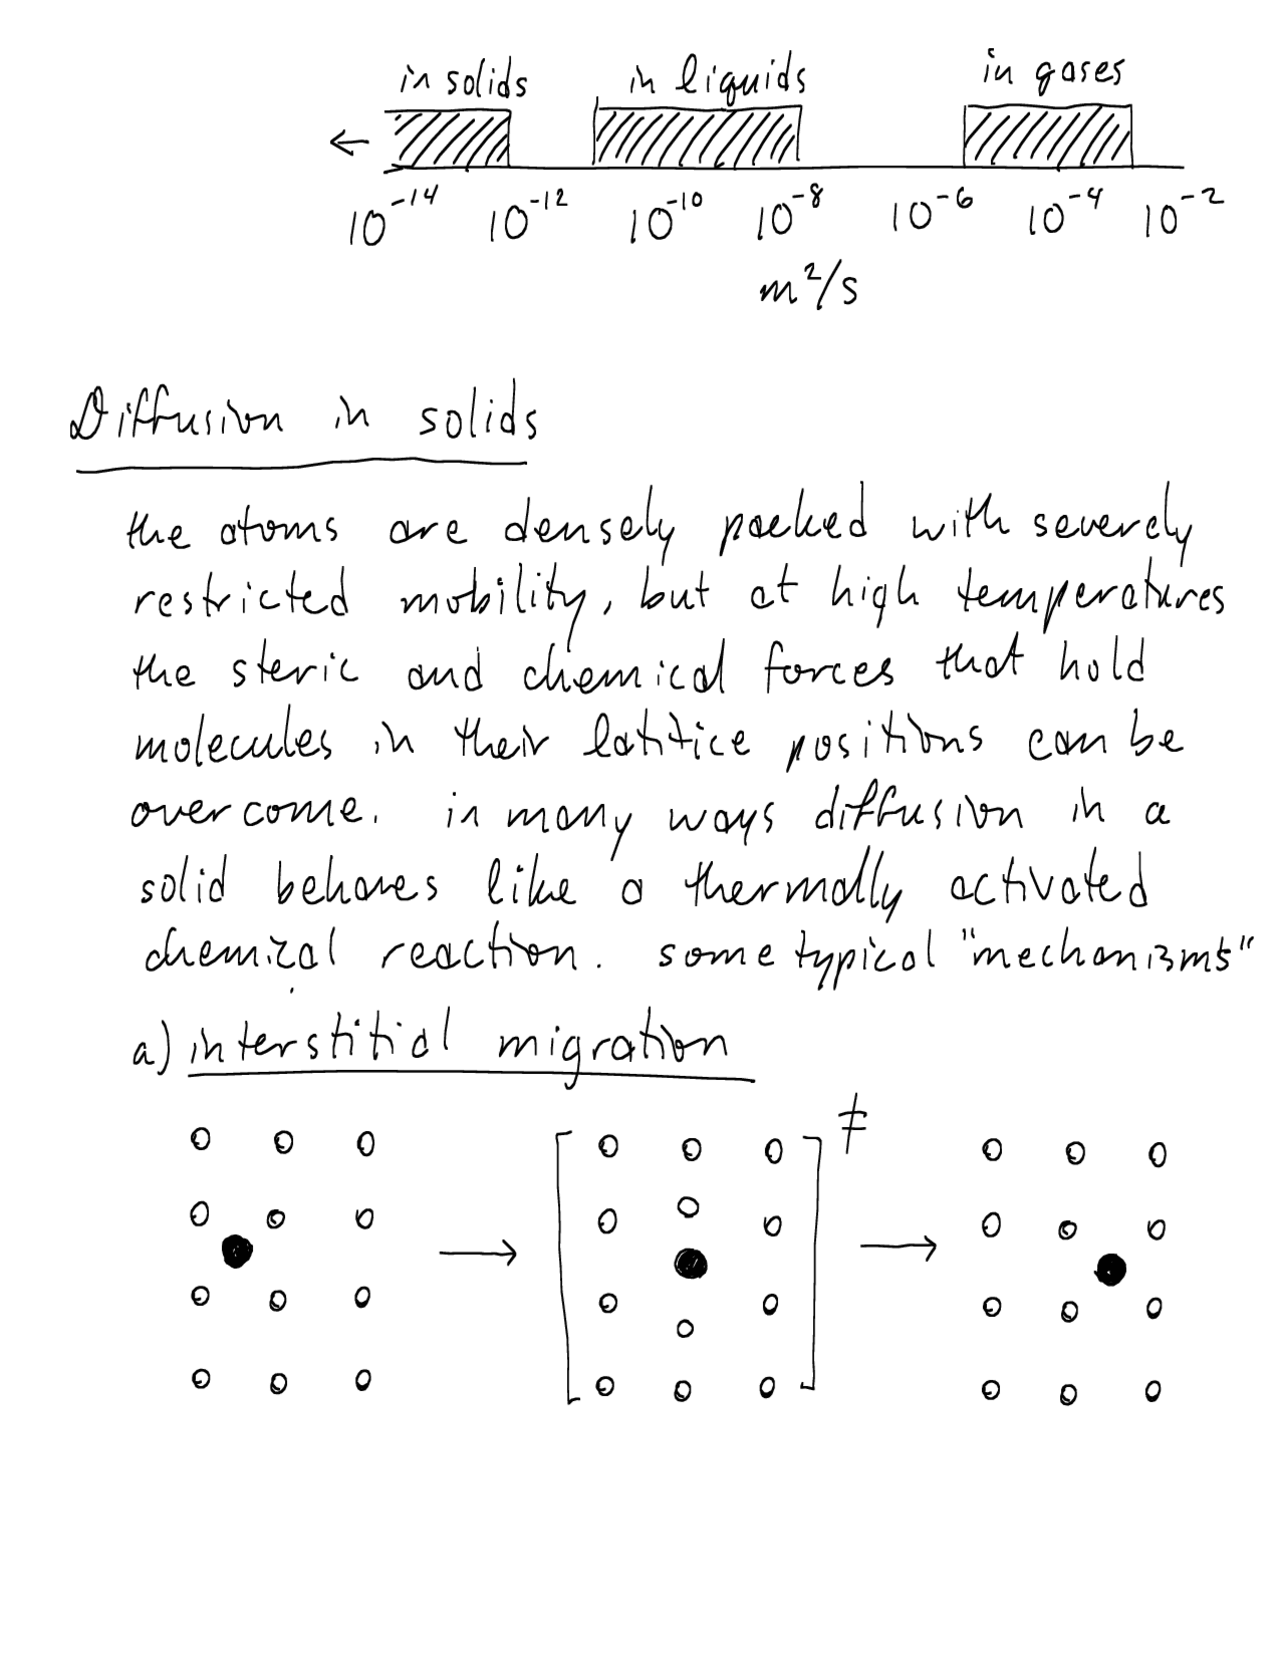 in solids in liquids in gases
10⁻¹⁴ 10⁻¹² 10⁻¹⁰ 10⁻⁸ 10⁻⁶ 10⁻⁴ 10⁻²
m²/s
Diffusion in solids
the atoms are densely packed with severely
restricted mobility, but at high temperatures
the steric and chemical forces that hold
molecules in their lattice positions can be
overcome. in many ways diffusion in a
solid behaves like a thermally activated
chemical reaction. some typical "mechanisms"
a) interstitial migration
‡